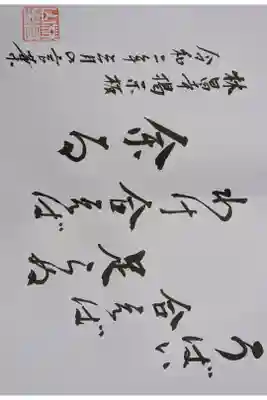 うばい
合えば
足らぬ
わけ合えば
余る
林昌寺掲示板
令和二年五月の言葉